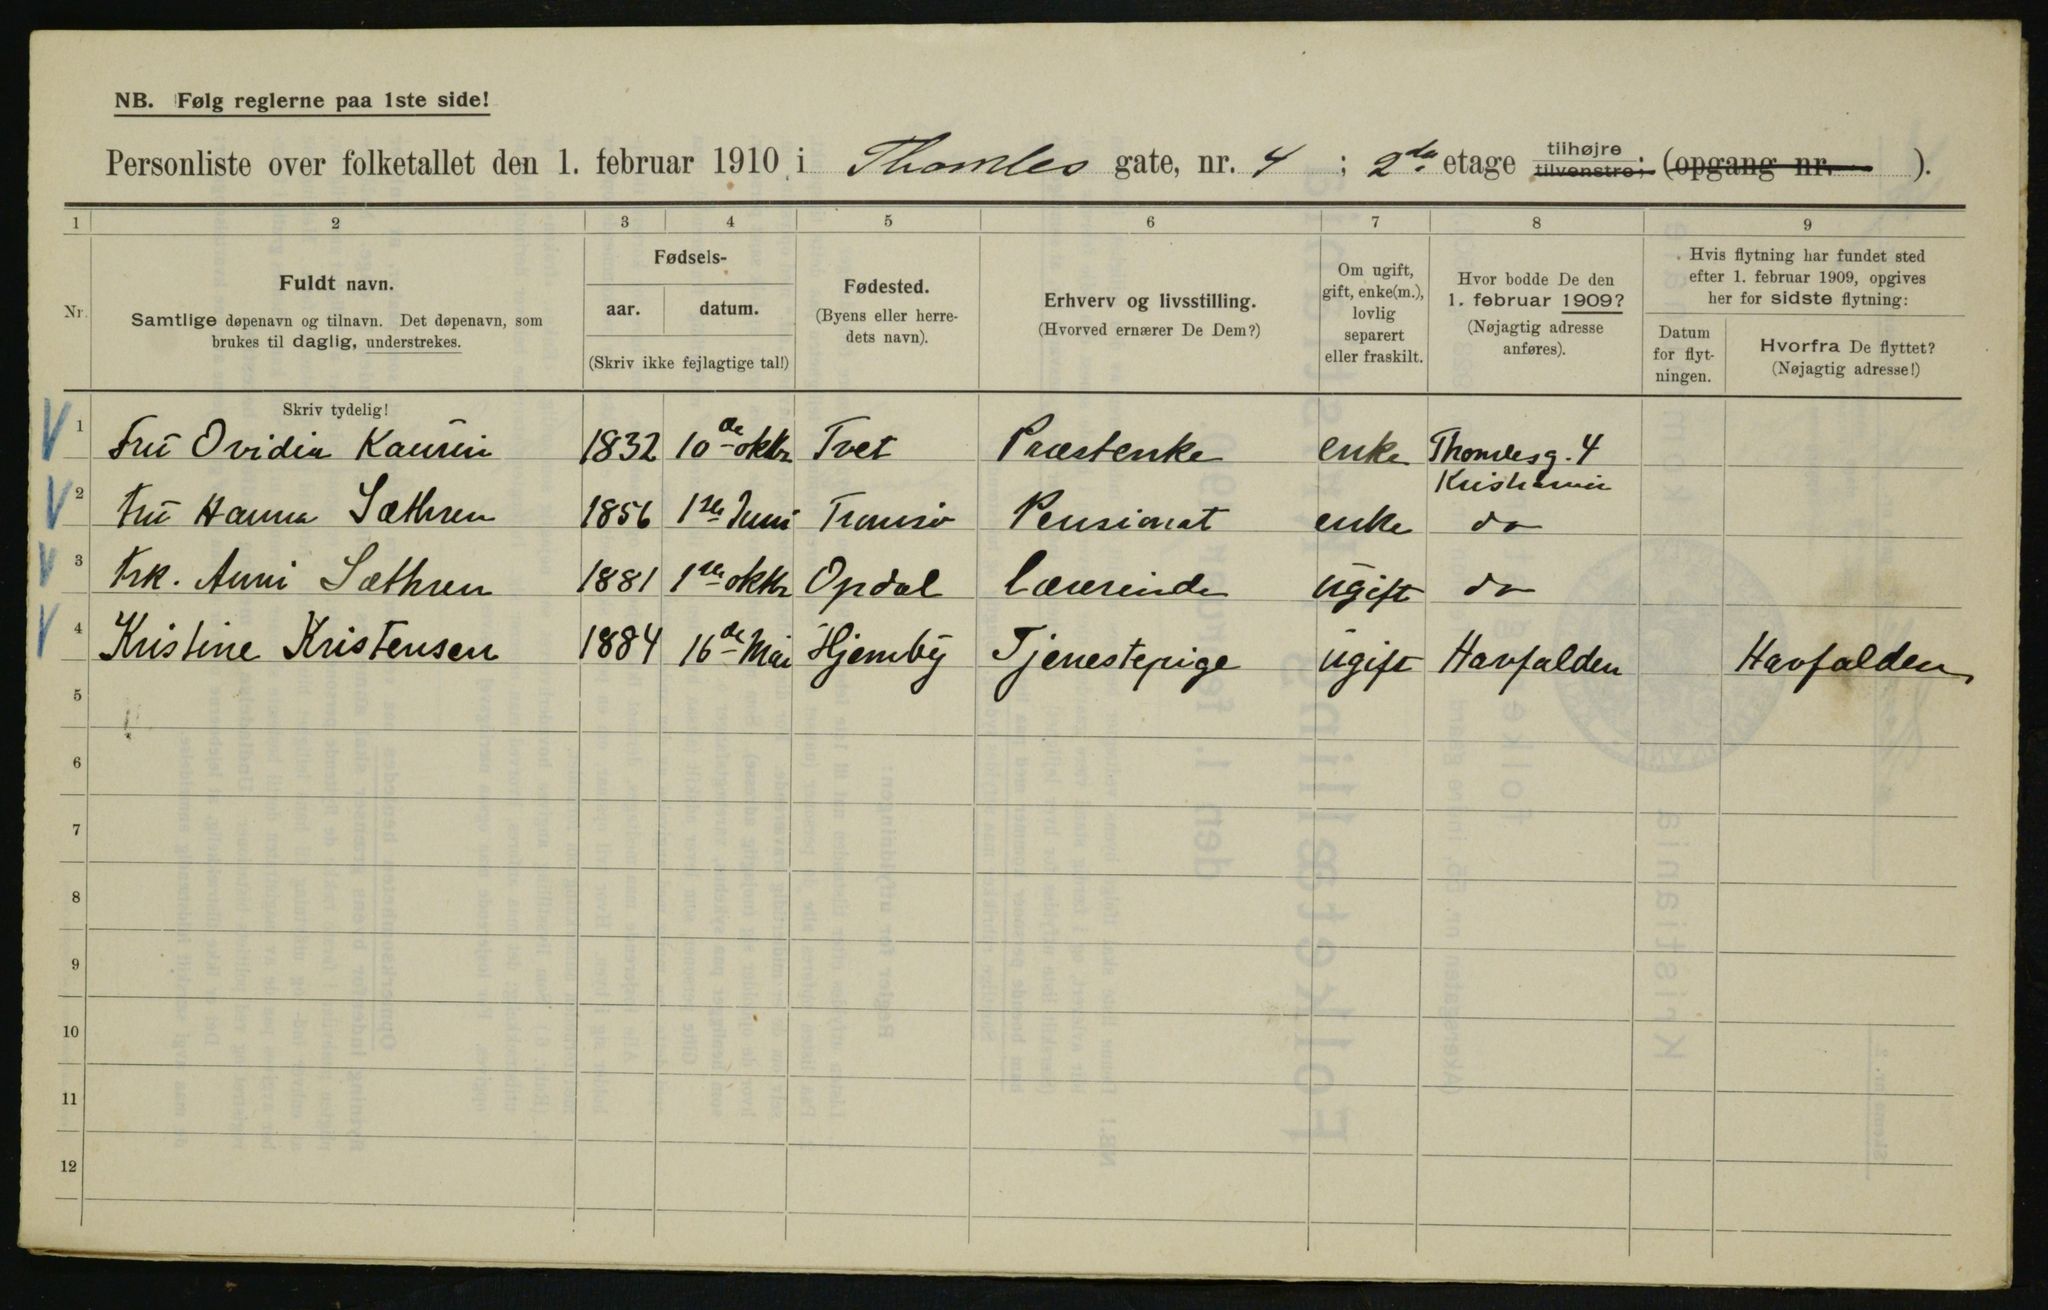 NB. Følg reglerne paa 1ste side!
Personliste over folketallet den 1. februar 1910 i Thomles gate, nr. 4 ; 2de etage tilhøjre tilvenstre; (opgang nr. ).
1 2 3 4 5 6 7 8 9
Nr. Fuldt navn. Samtlige døpenavn og tilnavn. Det døpenavn, som brukes til daglig, understrekes.
Fødsels- aar. datum. (Skriv ikke fejlagtige tal!)
Fødested. (Byens eller herredets navn).
Erhverv og livsstilling. (Hvorved ernærer De Dem?)
Om ugift, gift, enke(m.), lovlig separert eller fraskilt.
Hvor bodde De den 1. februar 1909? (Nøjagtig adresse anføres).
Hvis flytning har fundet sted efter 1. februar 1909, opgives her for sidste flytning:
Datum for flytningen.
Hvorfra De flyttet? (Nøjagtig adresse!)
Skriv tydelig!
1 Fru Ovidia Kaurin 1832 10de oktbr Tvet Præstenke enke Thomlesg. 4 Kristiania
2 Fru Hanna Sæthren 1856 1ste Juni Tromsø Pensionat enke do
3 Frk. Anni Sæthren 1881 1ste oktbr Opdal Lærerinde ugift do
4 Kristine Kristensen 1884 16de Mai Hjemby Tjenestepige ugift Havfalden Havfalden
5
6
7
8
9
10
11
12